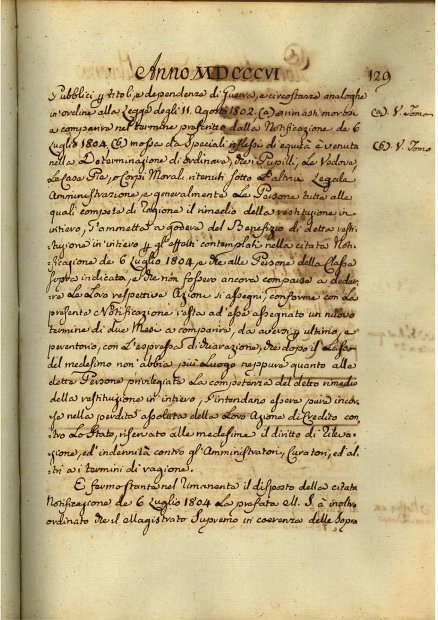 Anno MDCCCVI
129
Pubblici p titoli, e dependenze di Guerra, e circostanze analoghe
in ordine alla Legge degli 11. Agosto 1802. (a) rimasti morosi
a comparire nel termine prescritto dalla Notificazione de 6
Luglio 1804. (b) mossa da speciali riflessi di equità è venuta
nella Determinazione di ordinare, che i Pupilli, le Vedove,
le Case Pie, o Corpi Morali ritenuti sotto l'altrui Legale
Amministrazione, e generalmente le Persone tutte alle
quali compete di ragione il rimedio della restituzione in
intiero, s'ammetta a godere del Benefizio di detta resti-
tuzione in intiero p gl'effetti contemplati nella citata Noti-
ficazione de 6 Luglio 1804, e che alle Persone della Classe
sopra indicata, e che non fossero ancora comparse a dedur-
re le Loro respettive Azioni si assegni, conforme con la
presente Notificazione resta ad esse assegnato un nuovo
termine di due Mesi a comparire, da aversi p ultimo, e
perentorio, con l'espressa dichiarazione, che dopo il Lasso
del medesimo non abbia più Luogo neppure quanto alle
dette Persone privilegiate la competenza del detto rimedio
della restituzione in intiero, s'intendano essere pure incor-
se nella perdita assoluta della Loro Azione di Credito con-
tro lo Stato, riservato alle medesime il diritto di rileva-
zione, ed' indennità contro gl'Amministratori, Curatori, ed' al-
tri a i termini di ragione.
E fermo stante nel rimanente il disposto della citata
Notificazione de 6 Luglio 1804 La prefata M. S. à inoltre
ordinato che il Magistrato Supremo in coerenza delle Sopra
(a). V. Tomo
(b). V. Tomo